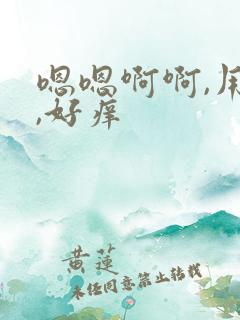 嗯嗯啊啊,
,好痒
黄莲
未经同意禁止转载